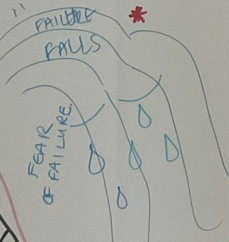 FAILURE
FALLS
FEAR
OF FAILURE